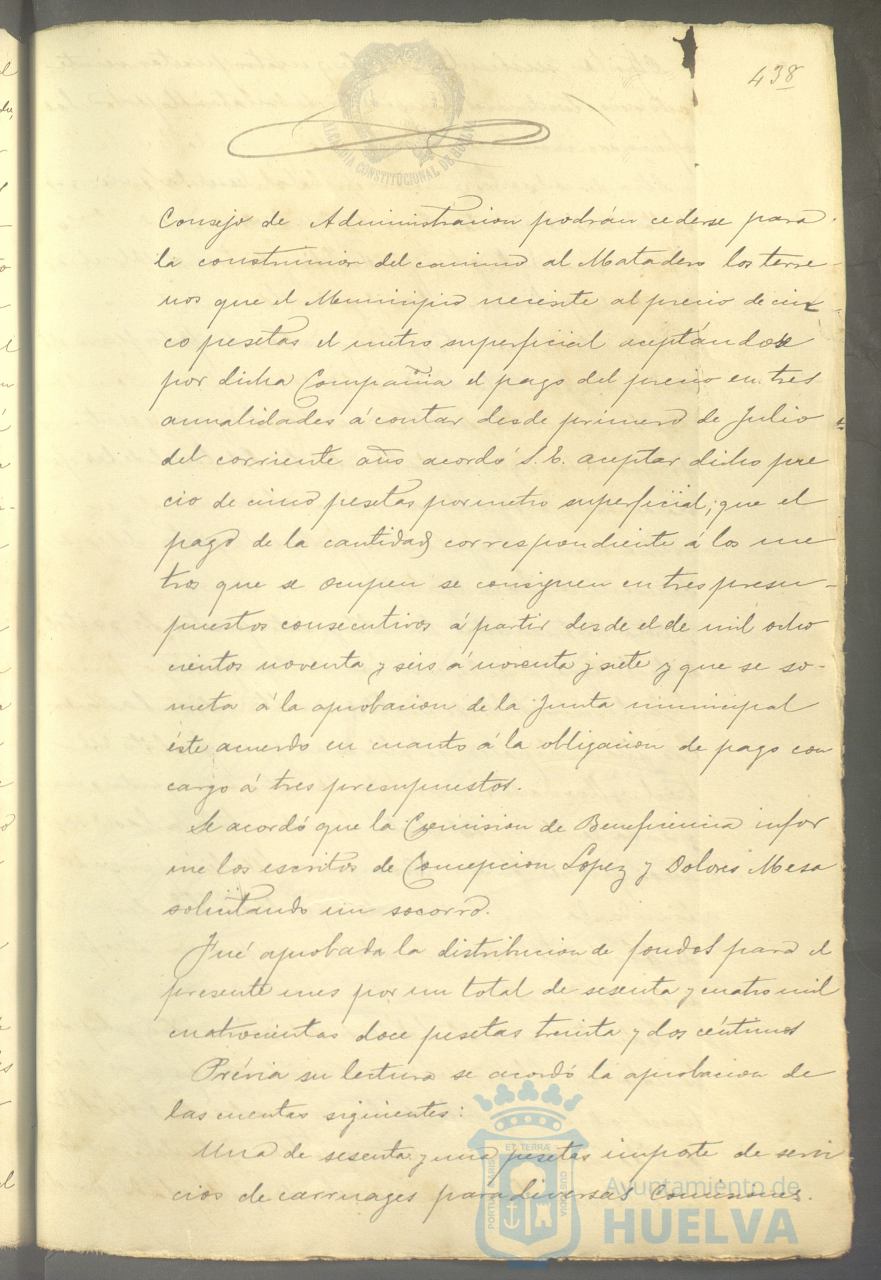 438
ALCALDIA CONSTITUCIONAL DE HUELVA
Consejo de Administracion podrán cederse para
la construccion del camino al Matadero los terre-
nos que el Municipio necesite al precio de cin-
co pesetas el metro superficial aceptándose
por dicha Compañia el pago del precio en tres
anualidades á contar desde primero de Julio
del corriente año acordó S.E. aceptar dicho pre
cio de cinco pesetas por metro superficial; que el
pago de la cantidad correspondiente á los me
tros que se ocupen se consignen en tres presu-
puestos consecutivos á partir desde el de mil ocho
cientos noventa y seis á noventa y siete y que se so-
meta á la aprobacion de la Junta municipal
éste acuerdo en cuanto á la obligacion de pago con
cargo á tres presupuestos.
Se acordó que la Comision de Beneficencia infor
me los escritos de Concepcion Lopez y Dolores Mesa
solicitando un socorro.
Fué aprobada la distribucion de fondos para el
presente mes por un total de sesenta y cuatro mil
cuatrocientas doce pesetas treinta y dos céntimos
Prévia su lectura se acordó la aprobacion de
las cuentas siguientes:
Una de sesenta y una pesetas importe de servi
cios de carruages para diversas Comisiones.
PORTUS MARIS ET TERRÆ CUSTODIA
Ayuntamiento de
HUELVA